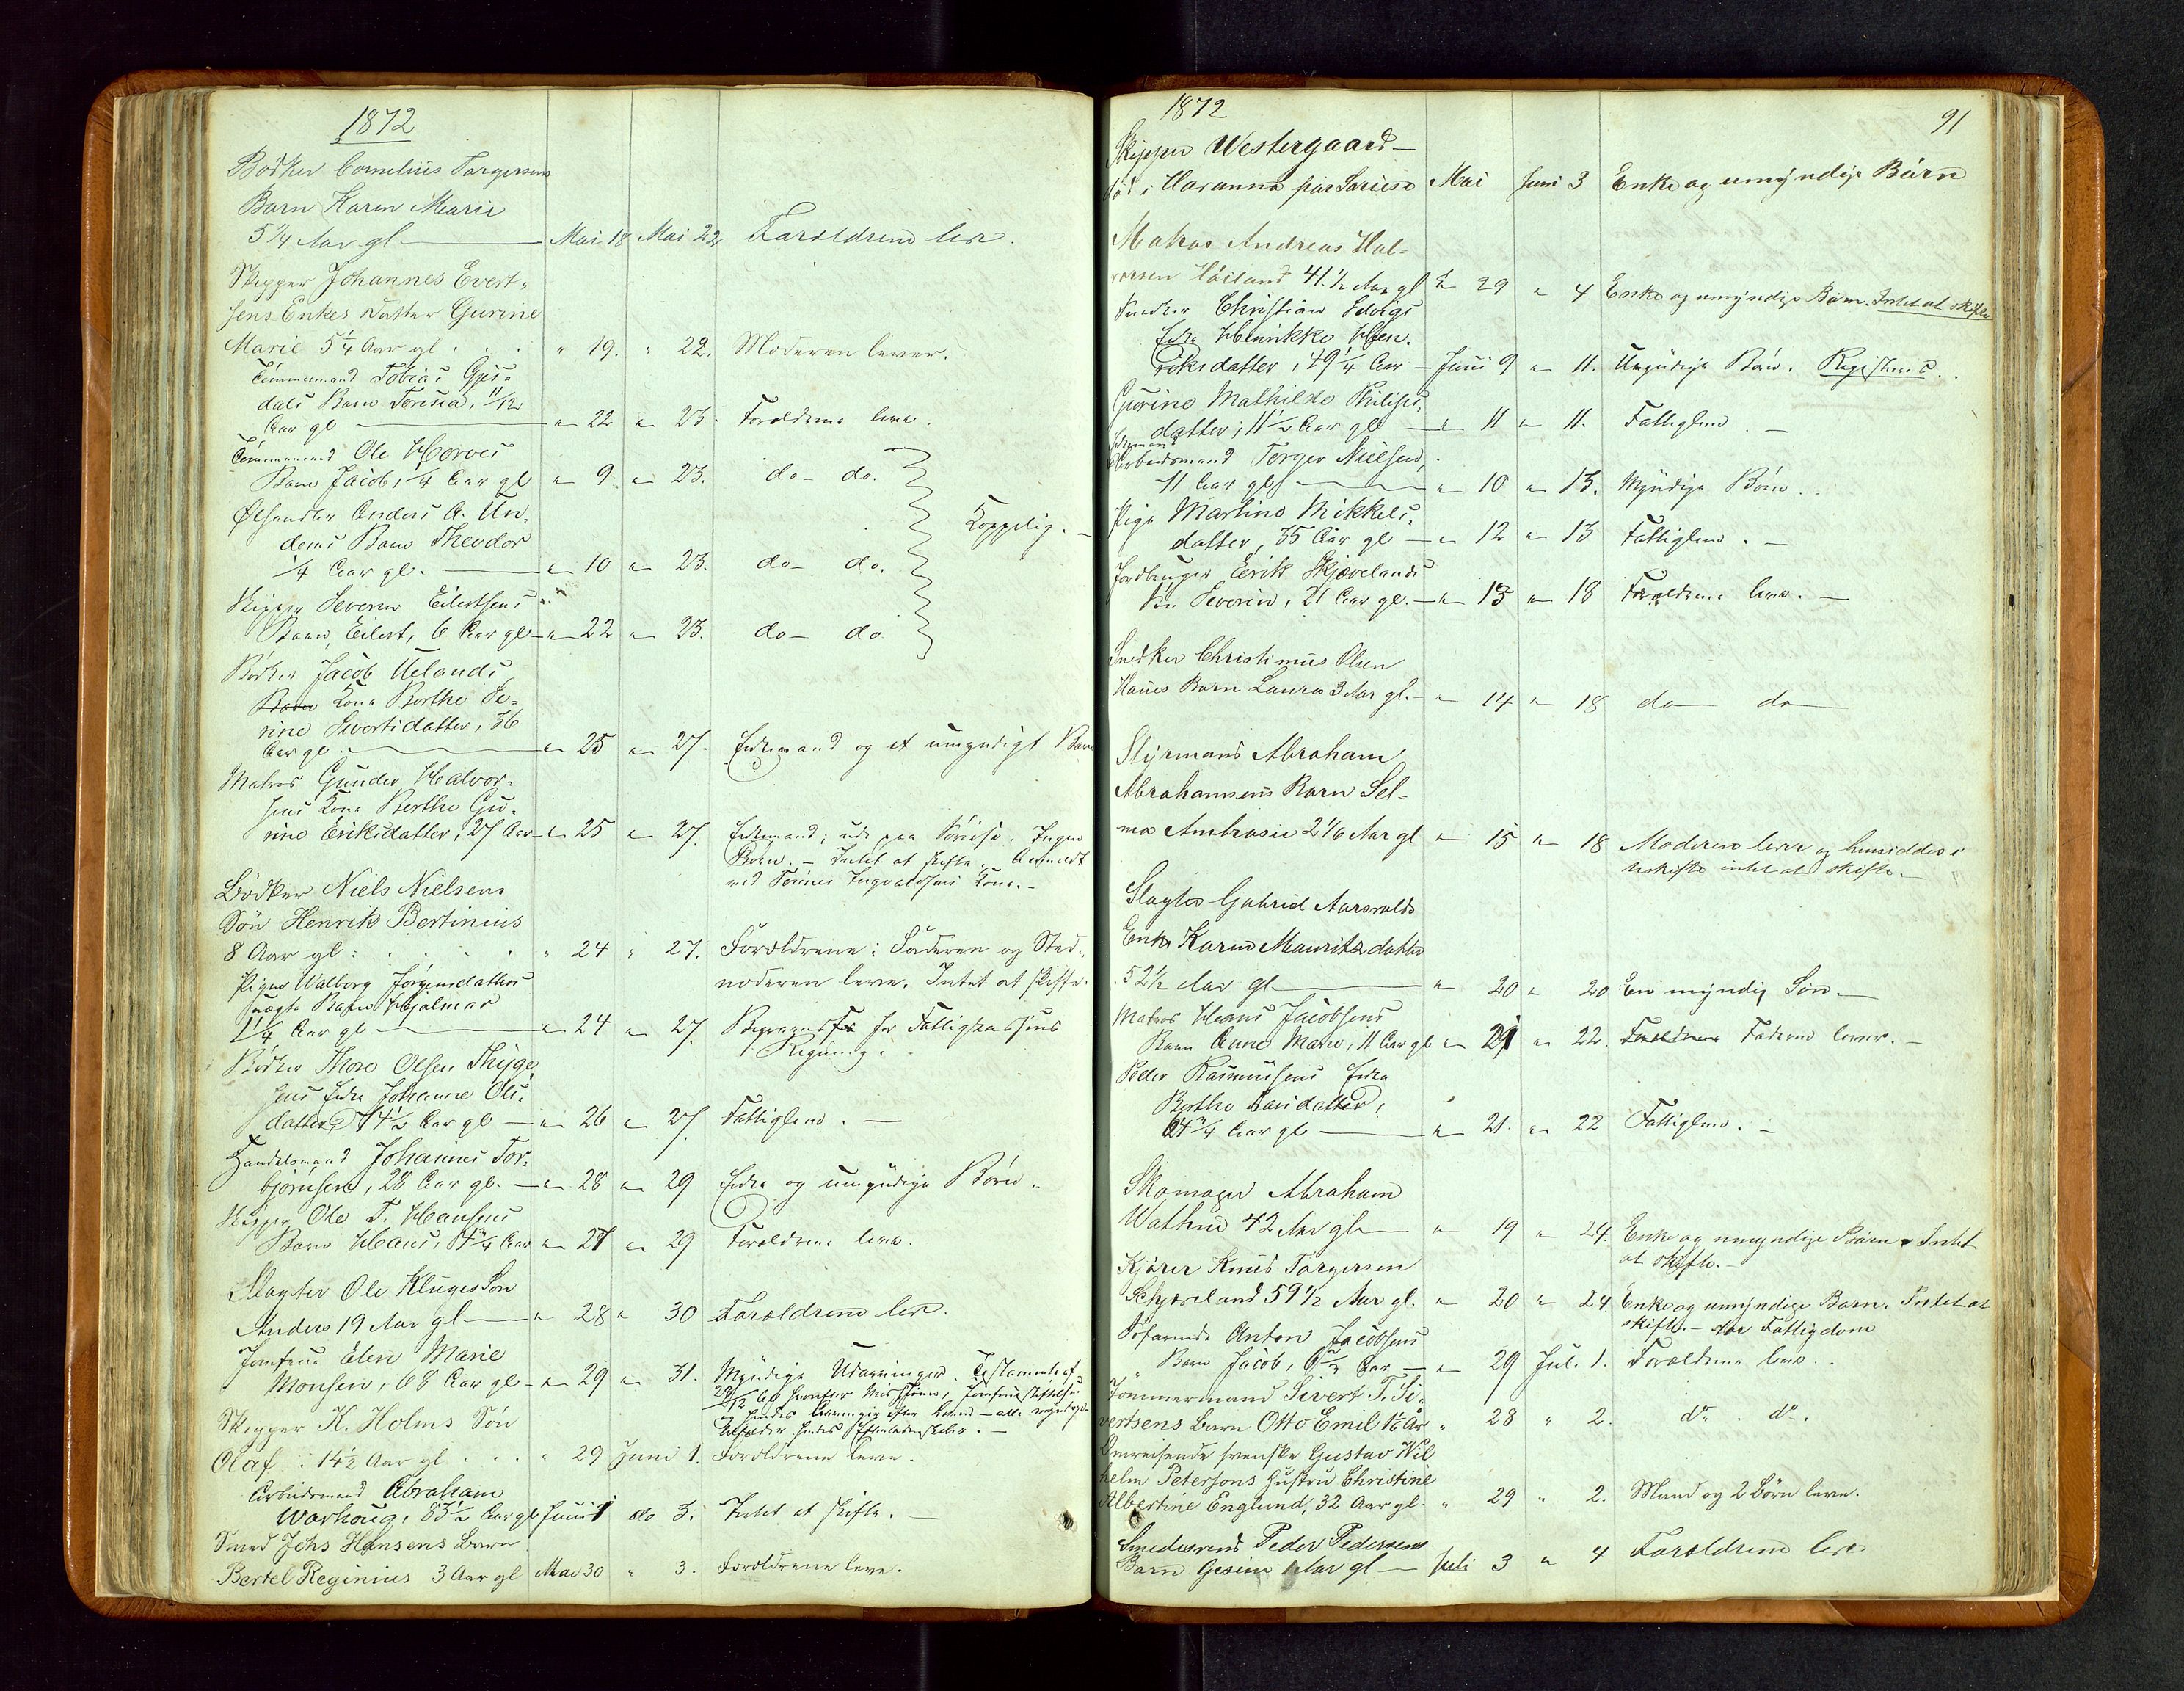 1872
Bødker Cornelius Torgersens
Barn Karen Marie
5 1/4 Aar gl — Mai 18 Mai 22 Forældrene lever.
Skipper Johannes Evert-
sens Enkes Datter Gurine
Marie 5 1/4 Aar gl . . . " 19. " 22. Moderen lever.
Tømmermand Tobias Gjes-
dals Barn Teresia, 11/12
Aar gl — " 22 " 23. Forældrene leve.
Tømmermand Ole
Barn Jacob, 1/4 Aar gl " 9 " 23. do — do.
Ølhandler Anders A. An-
dersens Barn Theodor
1/4 Aar gl. — " 10 " 23. do — do. Koppelig. —
Skipper Severin Eilertsens
Barn Eilert, 6 Aar gl — " 22 " 23. do — do
Bødker Jacob Uelands
Barn Kone Berthe Se-
rine Sivertsdatter, 36
Aar gl. — " 25 " 27. Enkemand og et umyndigt Barn
Matros Gunder Halvor-
sens Kone Berthe Gu-
rine Eriksdatter, 27 Aar — " 25 " 27. Enkemand; ude paa Søreise. Ingen
Børn. — Intet at skifte. Anmeldt
ved Ingvaldsens Kone. —
Bødker Niels Nielsens
Søn Henrik Bertinius
8 Aar gl: . . . . " 24 " 27. Forældrene: Faderen og Sted-
moderen leve. Intet at skifte.
Pigen Walborg Jørgensdatters
uægte Barn Hjalmar
1 1/4 Aar gl — " 24 " 27. Begraves for Fattigkassens
Regning.
Bødker Thore Olsen Thyge-
sens Enke Johanne Ols-
datter 74 1/2 Aar gl — " 26 " 27. Fattiglem. —
Handelsmand Johannes Tor-
bjørnsen, 28 Aar gl. — " 28 " 29 Enke og umyndige Børn.
Skipper Ole T. Hansens
Barn Hans, 4 3/4 Aar " 27 " 29 Forældrene leve.
Slagter Ole Kluges Søn
Anders 19 Aar gl — " 28 " 30 Forældrene leve.
Jomfru Elen Marie
Monsen, 68 Aar gl — " 29 " 31. Myndige Udarvinger. Testamente af
Skipper K. Holms Søn
Olaf : 14 1/2 Aar gl . . . " 29 Juni 1. Forældrene leve.
Arbeidsmand Abraham
Warhaug, 83 1/2 Aar gl Juni 1 do 3. Intet at skifte. —
Smed Johs Hansens Barn
Bertel Reginius 3 Aar gl Mai 30 " 3. Forældrene leve.
1872 91
Skipper Westergaard —
død i Havanna paa Søreise Mai Juni 3 Enke og umyndige Børn
Matros Andreas Hal-
vorsen Høiland 41 1/2 Aar gl " 29 " 4 Enke og umyndige Børn. Intet at skifte
Snedker Christian
Enke Henrikke Hen-
riksdatter, 49 1/4 Aar — Juni 9 " 11. Umyndige Børn. Registreres.
Gurine Mathilde Philips-
datter, 11 1/2 Aar gl — " 11 " 11. Fattiglem. —
Enkemand
Arbeidsmand Torger Nielsen,
71 Aar gl — " 10 " 13. Myndige Børn.
Pige Martine Mikkels-
datter, 35 Aar gl — " 12 " 13 Fattiglem. —
Jordbruger Erik Skjævelands
Søn Severin, 21 Aar gl. — " 13 " 18 Forældrene leve. —
Snedker Christinius Olsen
Barn Laura 3 Aar gl. — " 14 " 18 do — do —
Styrmand Abraham
Abrahamsens Barn Sel-
ma Ambrosie 2 1/6 Aar gl " 15 " 18 Moderen lever og hensidder i
uskifte intet at skifte. —
Slagter Gabriel Aarsvolds
Enke Karen Mauritzdatter
52 1/2 Aar gl — " 20 " 20 En myndig Søn. —
Matros Hans Jacobsens
Barn Anne Marie, 11 Aar gl " 21 " 22. Forældrene Faderen lever. —
Peder Rasmussens Enke
Berthe Larsdatter,
64 3/4 Aar gl — " 21. " 22 Fattiglem. —
Skomager Abraham
Wathne 42 Aar gl — " 19 " 24. Enke og umyndige Børn. Intet
at skifte. —
Kjører Knud Torgersen
Schjæveland 59 1/2 Aar gl. " 20 " 24 Enke og umyndige Børn. Intet at
skifte. — stor Fattigdom
Søfarende Anton Jacobsens
Barn Jacob, 6 1/2 Aar — " 29 Jul. 1. Forældrene leve. .
Tømmermand Sivert T. Si-
vertsens Barn Otto Emil 1 1/2 År " 28 " 2. do . do.
Omreisende svenske Gustav Wil-
helm Petersons Hustru Christine
Albertine Englund, 32 Aar gl. " 29 " 2. Mand og 2 Børn leve.
Smedesvend Peder Pedersens
Barn Gesine 1 Aar gl — Juli 3 " 4 Forældrene leve